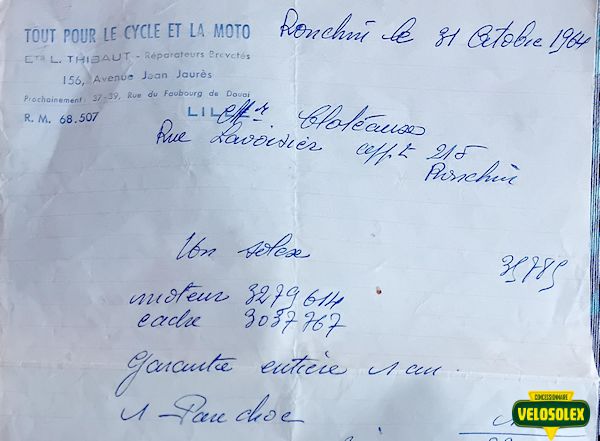 TOUT POUR LE CYCLE ET LA MOTO
Ets L. THIBAUT - Réparateurs Brevetés
156, Avenue Jean Jaurès
Prochainement 37-39, Rue du Faubourg de Douai
R. M. 68.507 LILLE
Ronchin le 31 Octobre 1964
Mr
Rue Lavoisier appt 215
Ronchin
Un solex 39785
moteur 3279614
cadre 3037767
Garantie entière 1 an
1 Par choc
CONCESSIONNAIRE
VELOSOLEX